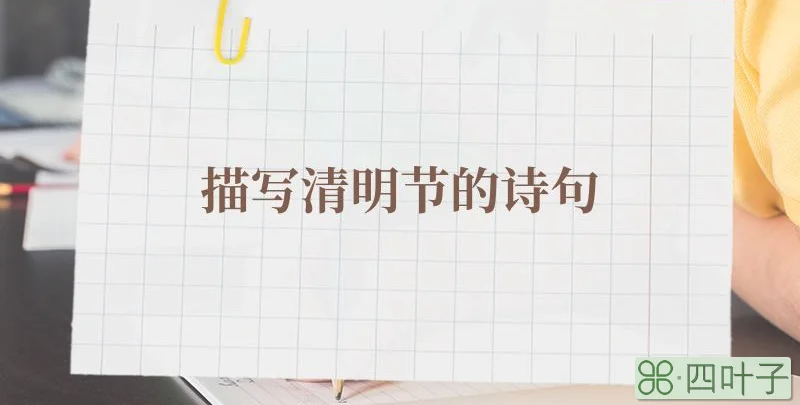 描写清明节的诗句
四叶子